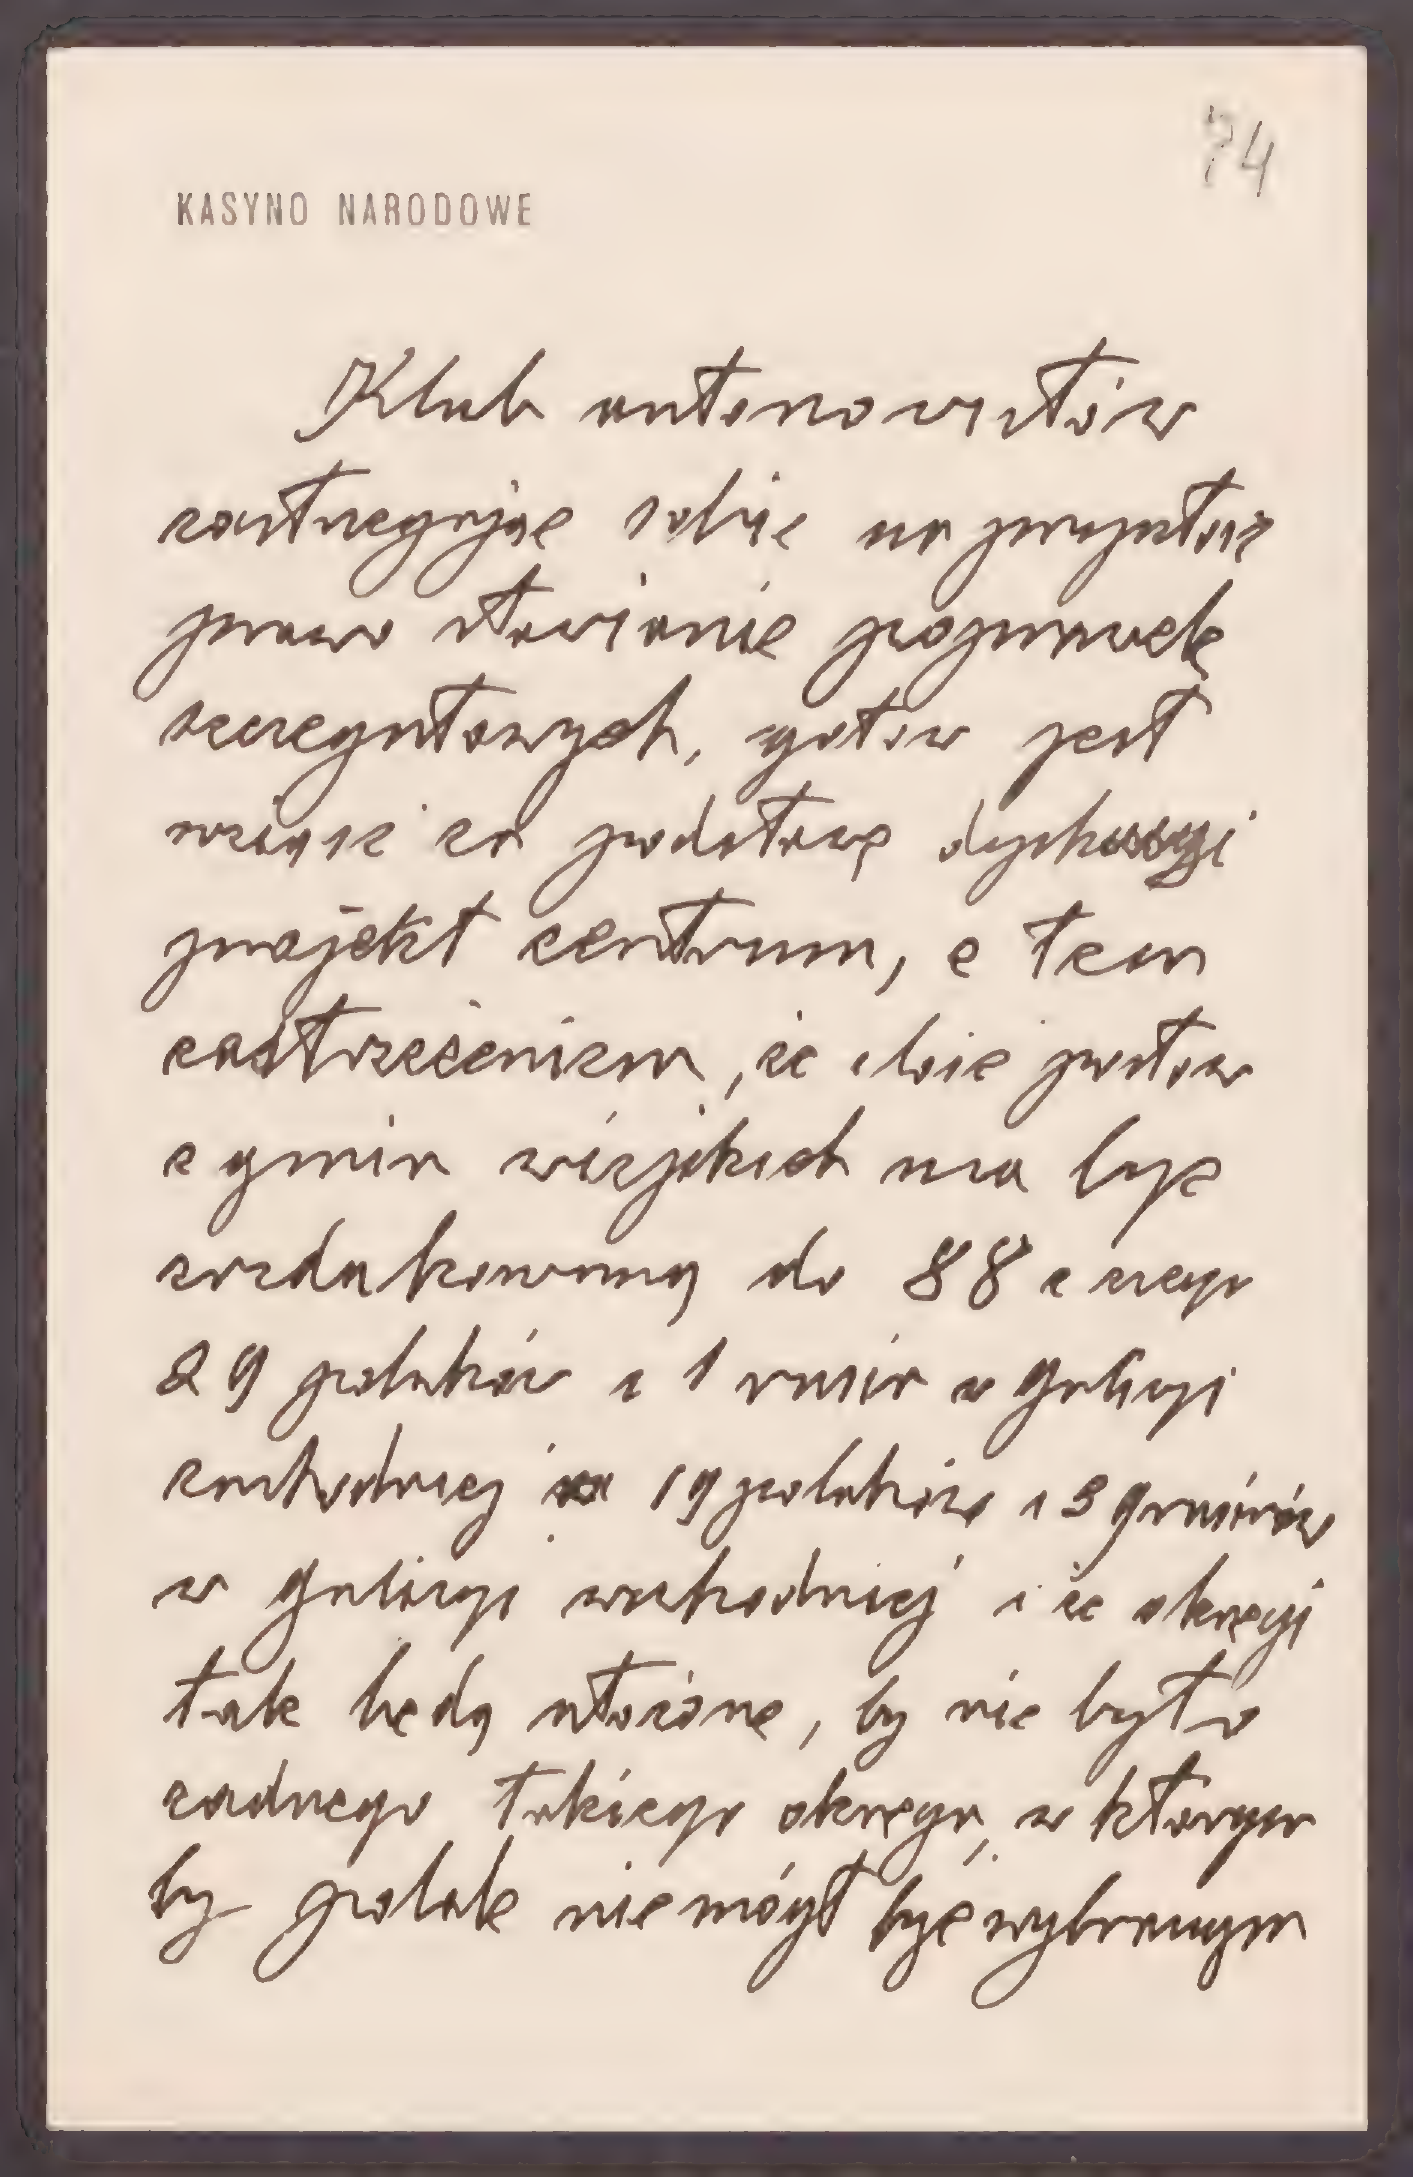 74
KASYNO NARODOWE
Klub autonomistów
zastrzegając sobie na przyszłość
prawo stawianie poprawek
szczegółowych, gotów jest
wziąść za podstawę dyskusyi
projekt centrum, z tem
zastrzeżeniem, że posłów
z gmin wiejskich ma być
zredukowaną do 88 z czego
29 polaków i 1 rusin w Galicyi
zachodniej 19 polaków i rusinów
w Galicyi wschodniej i że okręgi
tak będą ułożone, by nie było
żadnego takiego okręgu, w którym
by polak nie mógł być wybranym